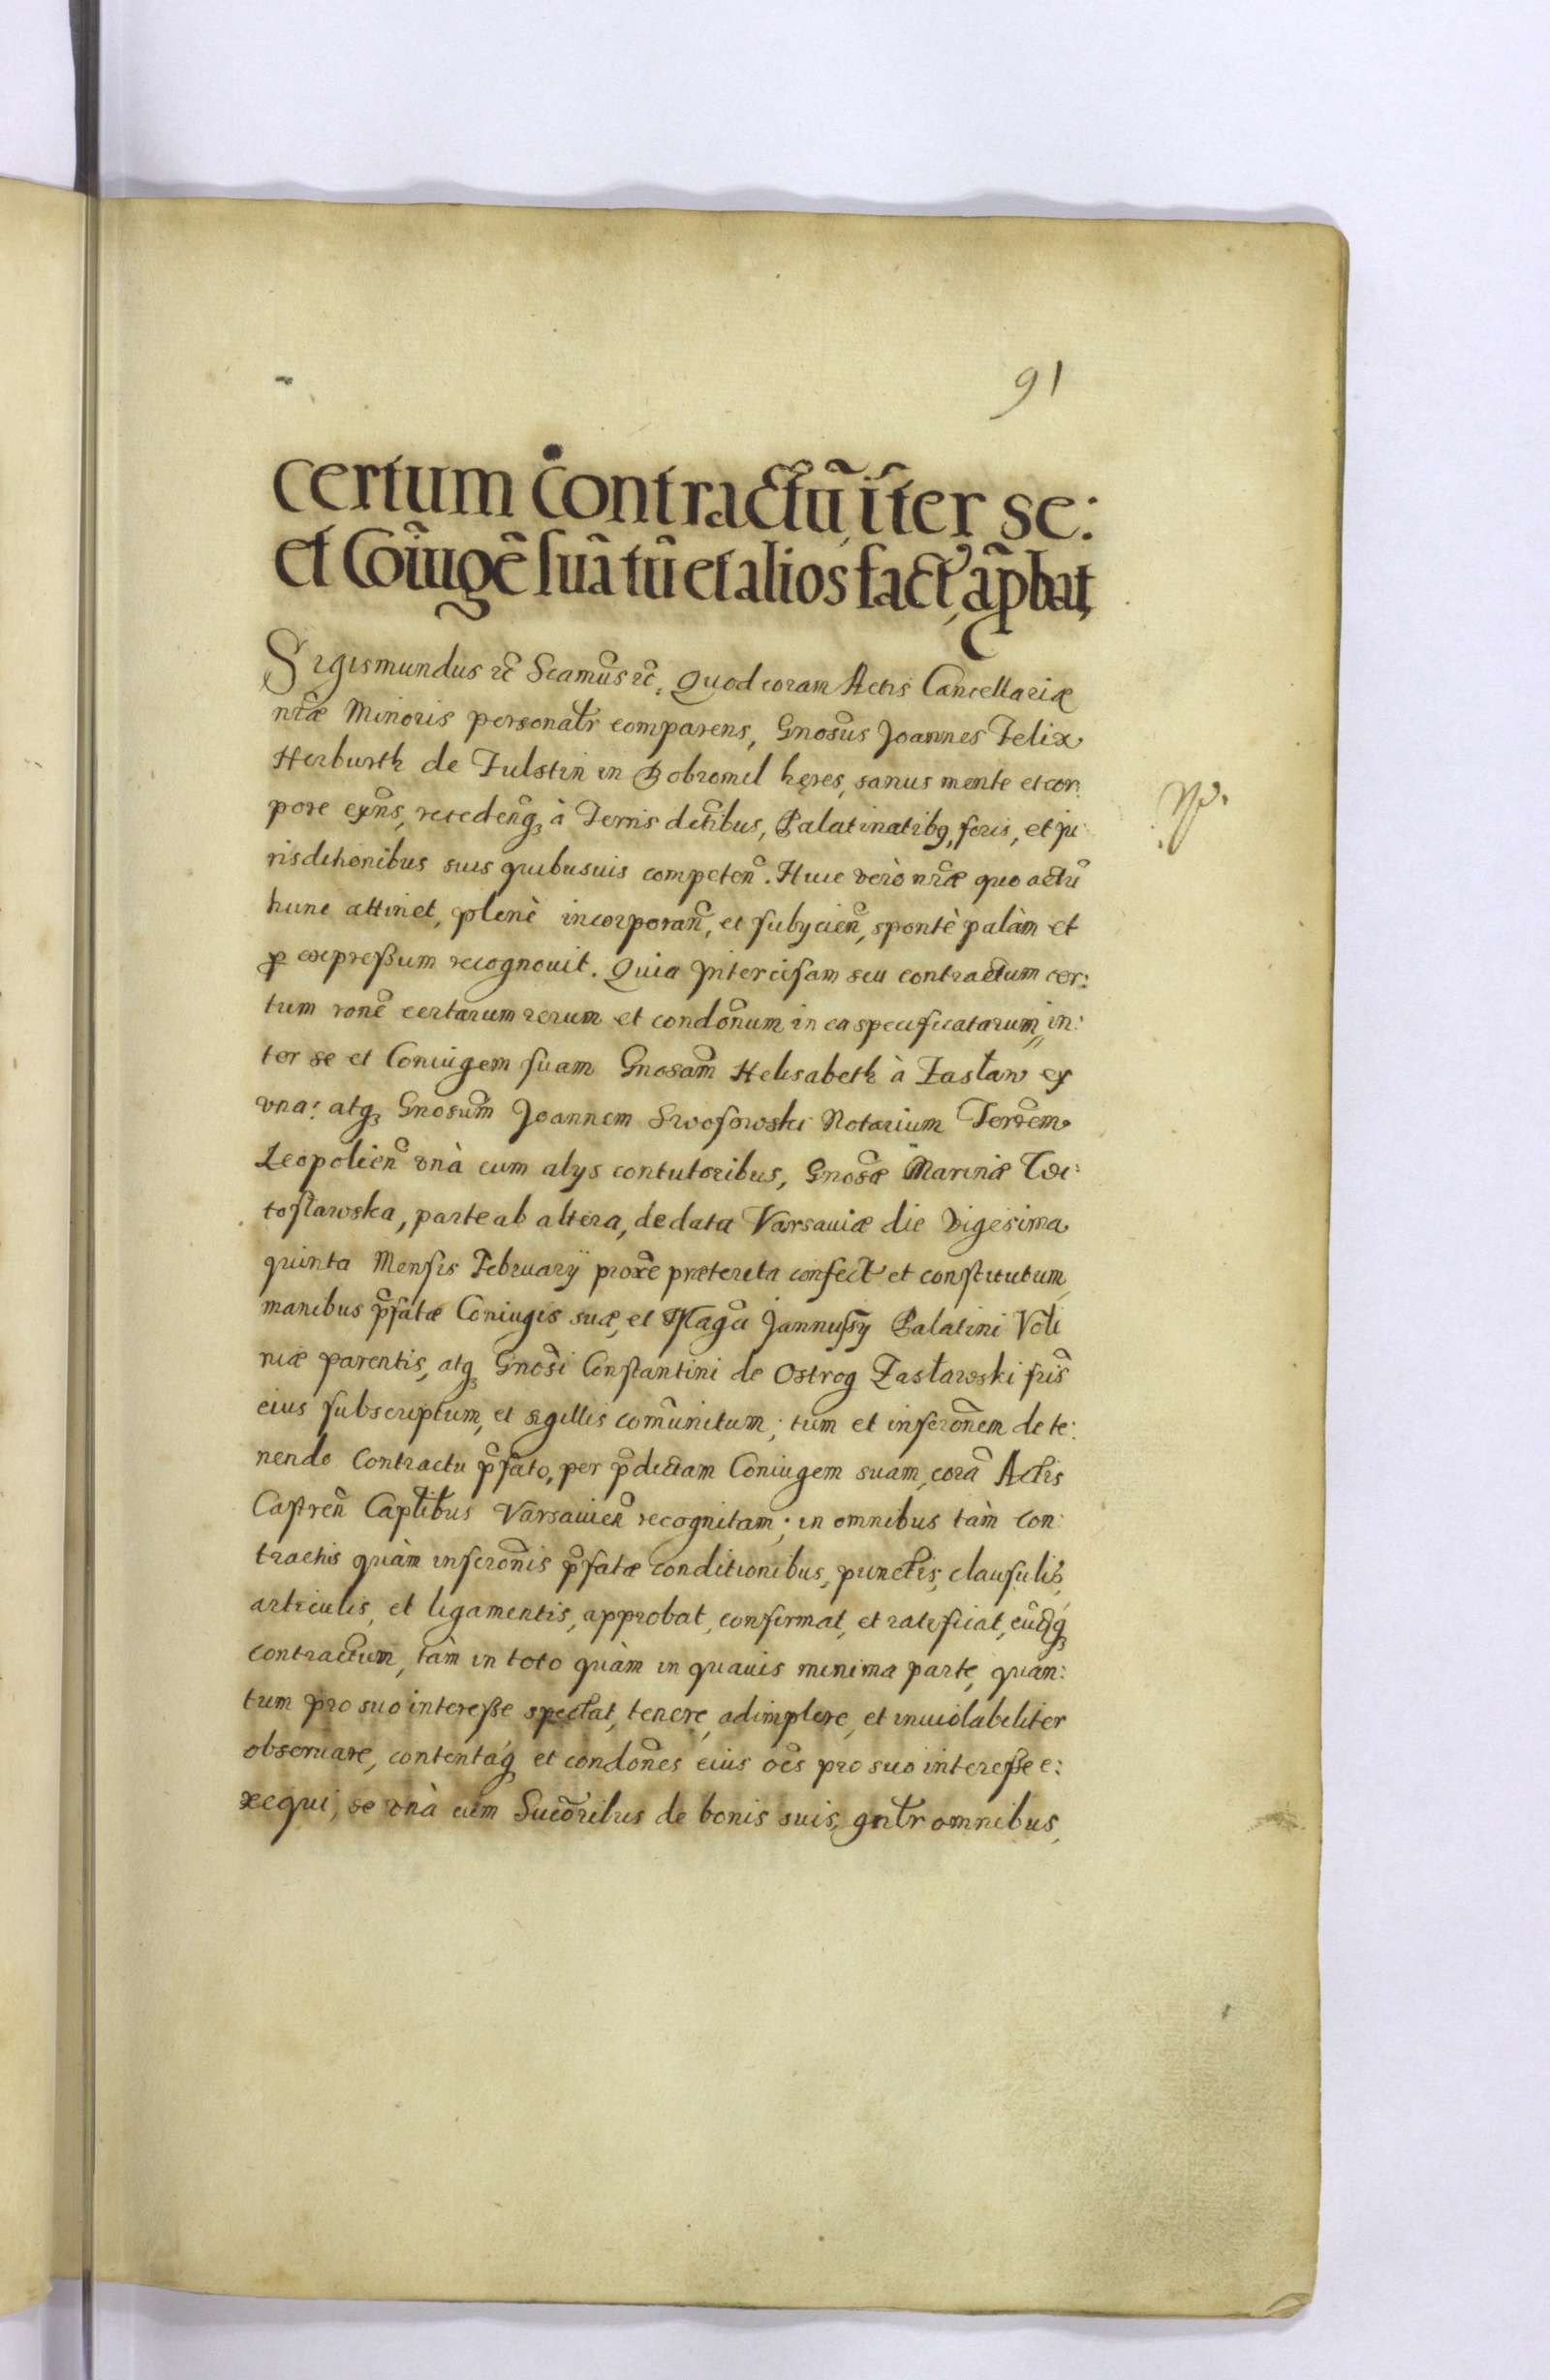 91
certum contractū īter se:
et Coīugē suā tū et alios fact, āpbat,
Sigismundus ꝛc̃ Scamūs ꝛc̃. Quod coram Actis Cancellariæ
nr̃æ Minoris personalr̃ comparens, Gnosūs Joannes Felix
Herburth de Fulstin in Dobromil hęres, sanus mente et cor:
pore exñs, recedenq̃ȝ à Terris dctībus, Palatinatibꝯ, foris, et ju
risditionibus suis quibusuis competeñ. Huic verò nr̃æ quo actū
hunc attinet, plenè incorporañ, et subyicieñ, spontè palàm et
ꝑ expreßum recognouit. Quia Intercisam seu contractum cer:
tum rone͂ certarum rerum et condōnum in ea specificatarum, in:
ter se et Coniugem suam Gnosam̃ Helisabeth à Zasław ex
vna: atqȝ Gnosum̃ Joannem Swosowski Notarium Terrēm
Leopolieñ vnà cum alys contutoribus, Gnosæ̃ Marinæ Woi:
tosławska, parte ab altera, de data Varsauiæ die Vigesima
quinta Mensis February proxē præterita confect et constitutum,
manibus p̃fatæ Coniugis suæ, et Magci̅ Jannussy Palatini Voli
niæ parentis, atqȝ Gnosi̅ Constantini de Ostrog Zasławski fris̃
eius subscriptum, et sigillis com̃unitum; tum et inscrōnem de te:
nendo Contractu p̃fato, per p̃dictam Coniugem suam, corã Actis
Castreñ Captibus̃ Varsauieñ recognitam; in omnibus tàm con:
tractus quàm inscrōnis p̃fatæ conditionibus, punctis, clausulis,
articulis, et ligamentis, approbat, confirmat, et ratificat, eūdqȝ
contractum, tàm in toto quàm in quauis minima parte, quan:
tum pro suo intereße spectat, tenere, adimplere, et inuiolabiliter
obseruare, contentaqȝ et condōnes eius oēs pro suo intereße e:
xequi, se vnà cum Succōribus de bonis suis, gnlr̃ omnibus,